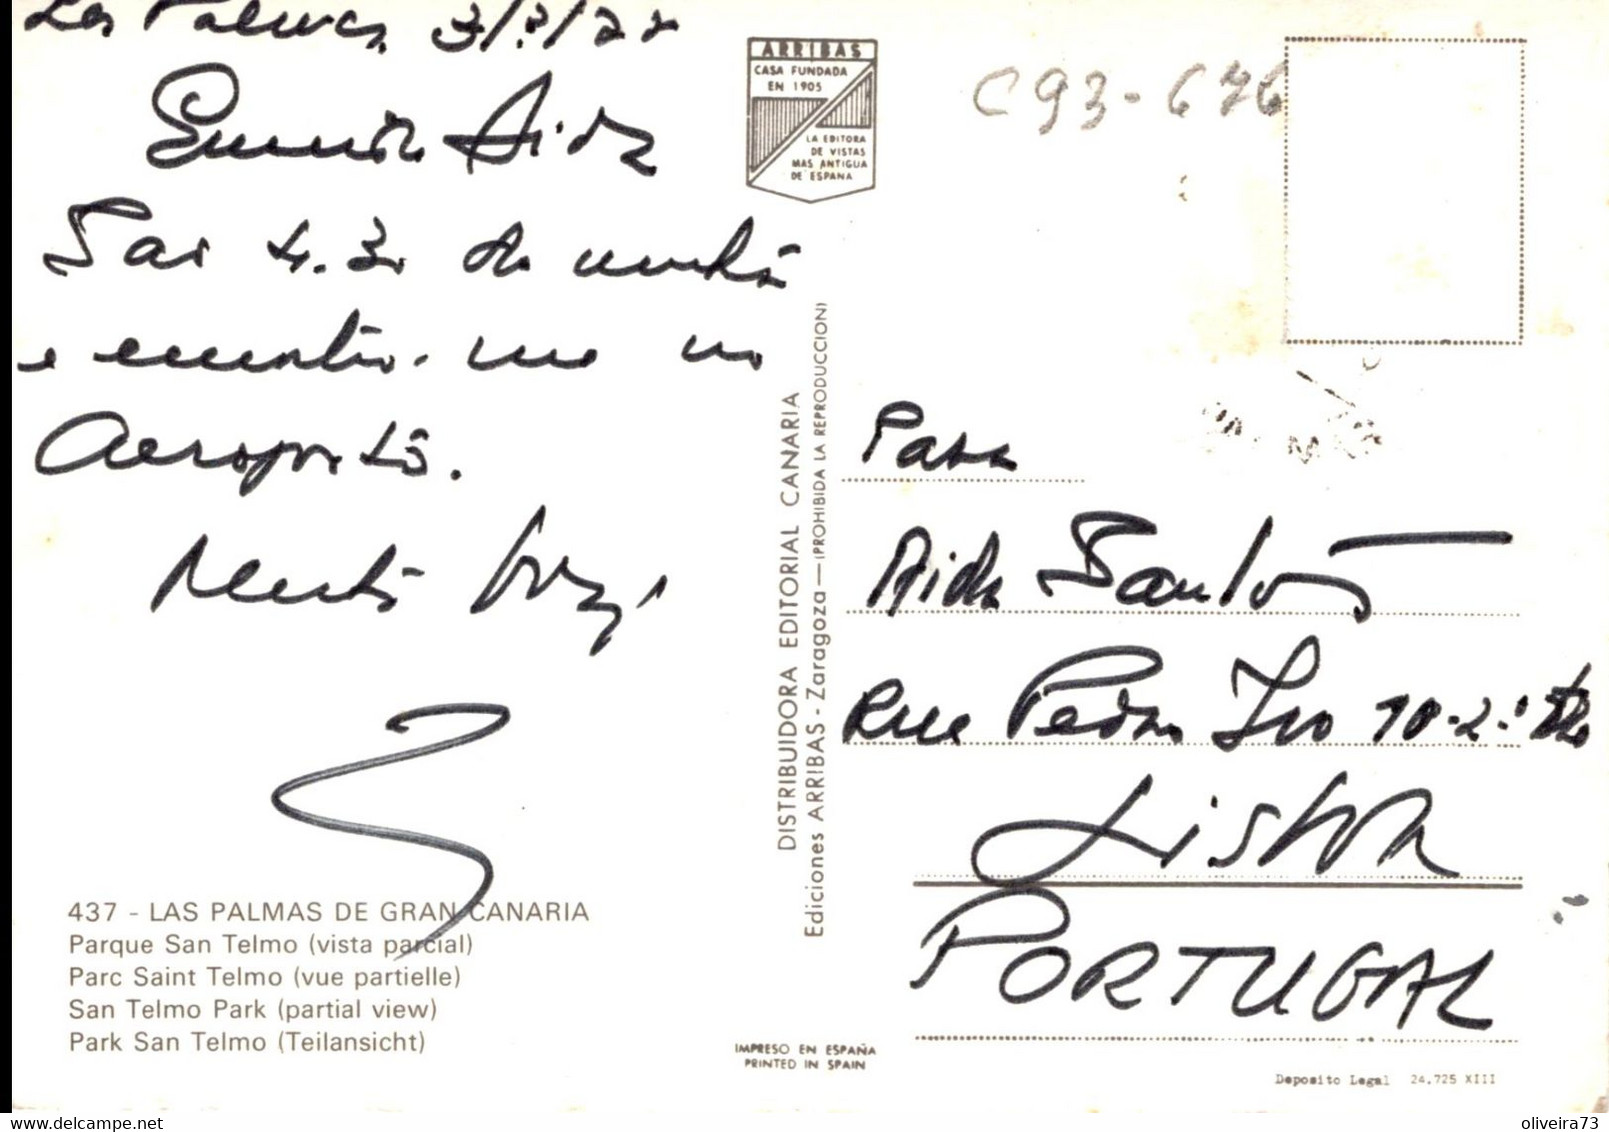 Las Palmas 3/?/77
Querida Aida
São 4.30 da manhã
e encontro-me no
Aeroporto.
Muitos
ARRIBAS
CASA FUNDADA
EN 1905
LA EDITORA
DE VISTAS
MAS ANTIGUA
DE ESPAÑA
C93-676
DISTRIBUIDORA EDITORIAL CANARIA
Ediciones ARRIBAS - Zaragoza — (PROHIBIDA LA REPRODUCCION)
Para
Aida Santos
Rua Pedro Ivo 10-2.º Dto
Lisboa
PORTUGAL
437 - LAS PALMAS DE GRAN CANARIA
Parque San Telmo (vista parcial)
Parc Saint Telmo (vue partielle)
San Telmo Park (partial view)
Park San Telmo (Teilansicht)
IMPRESO EN ESPAÑA
PRINTED IN SPAIN
Deposito Legal 24.725 XIII
www.delcampe.net
oliveira73